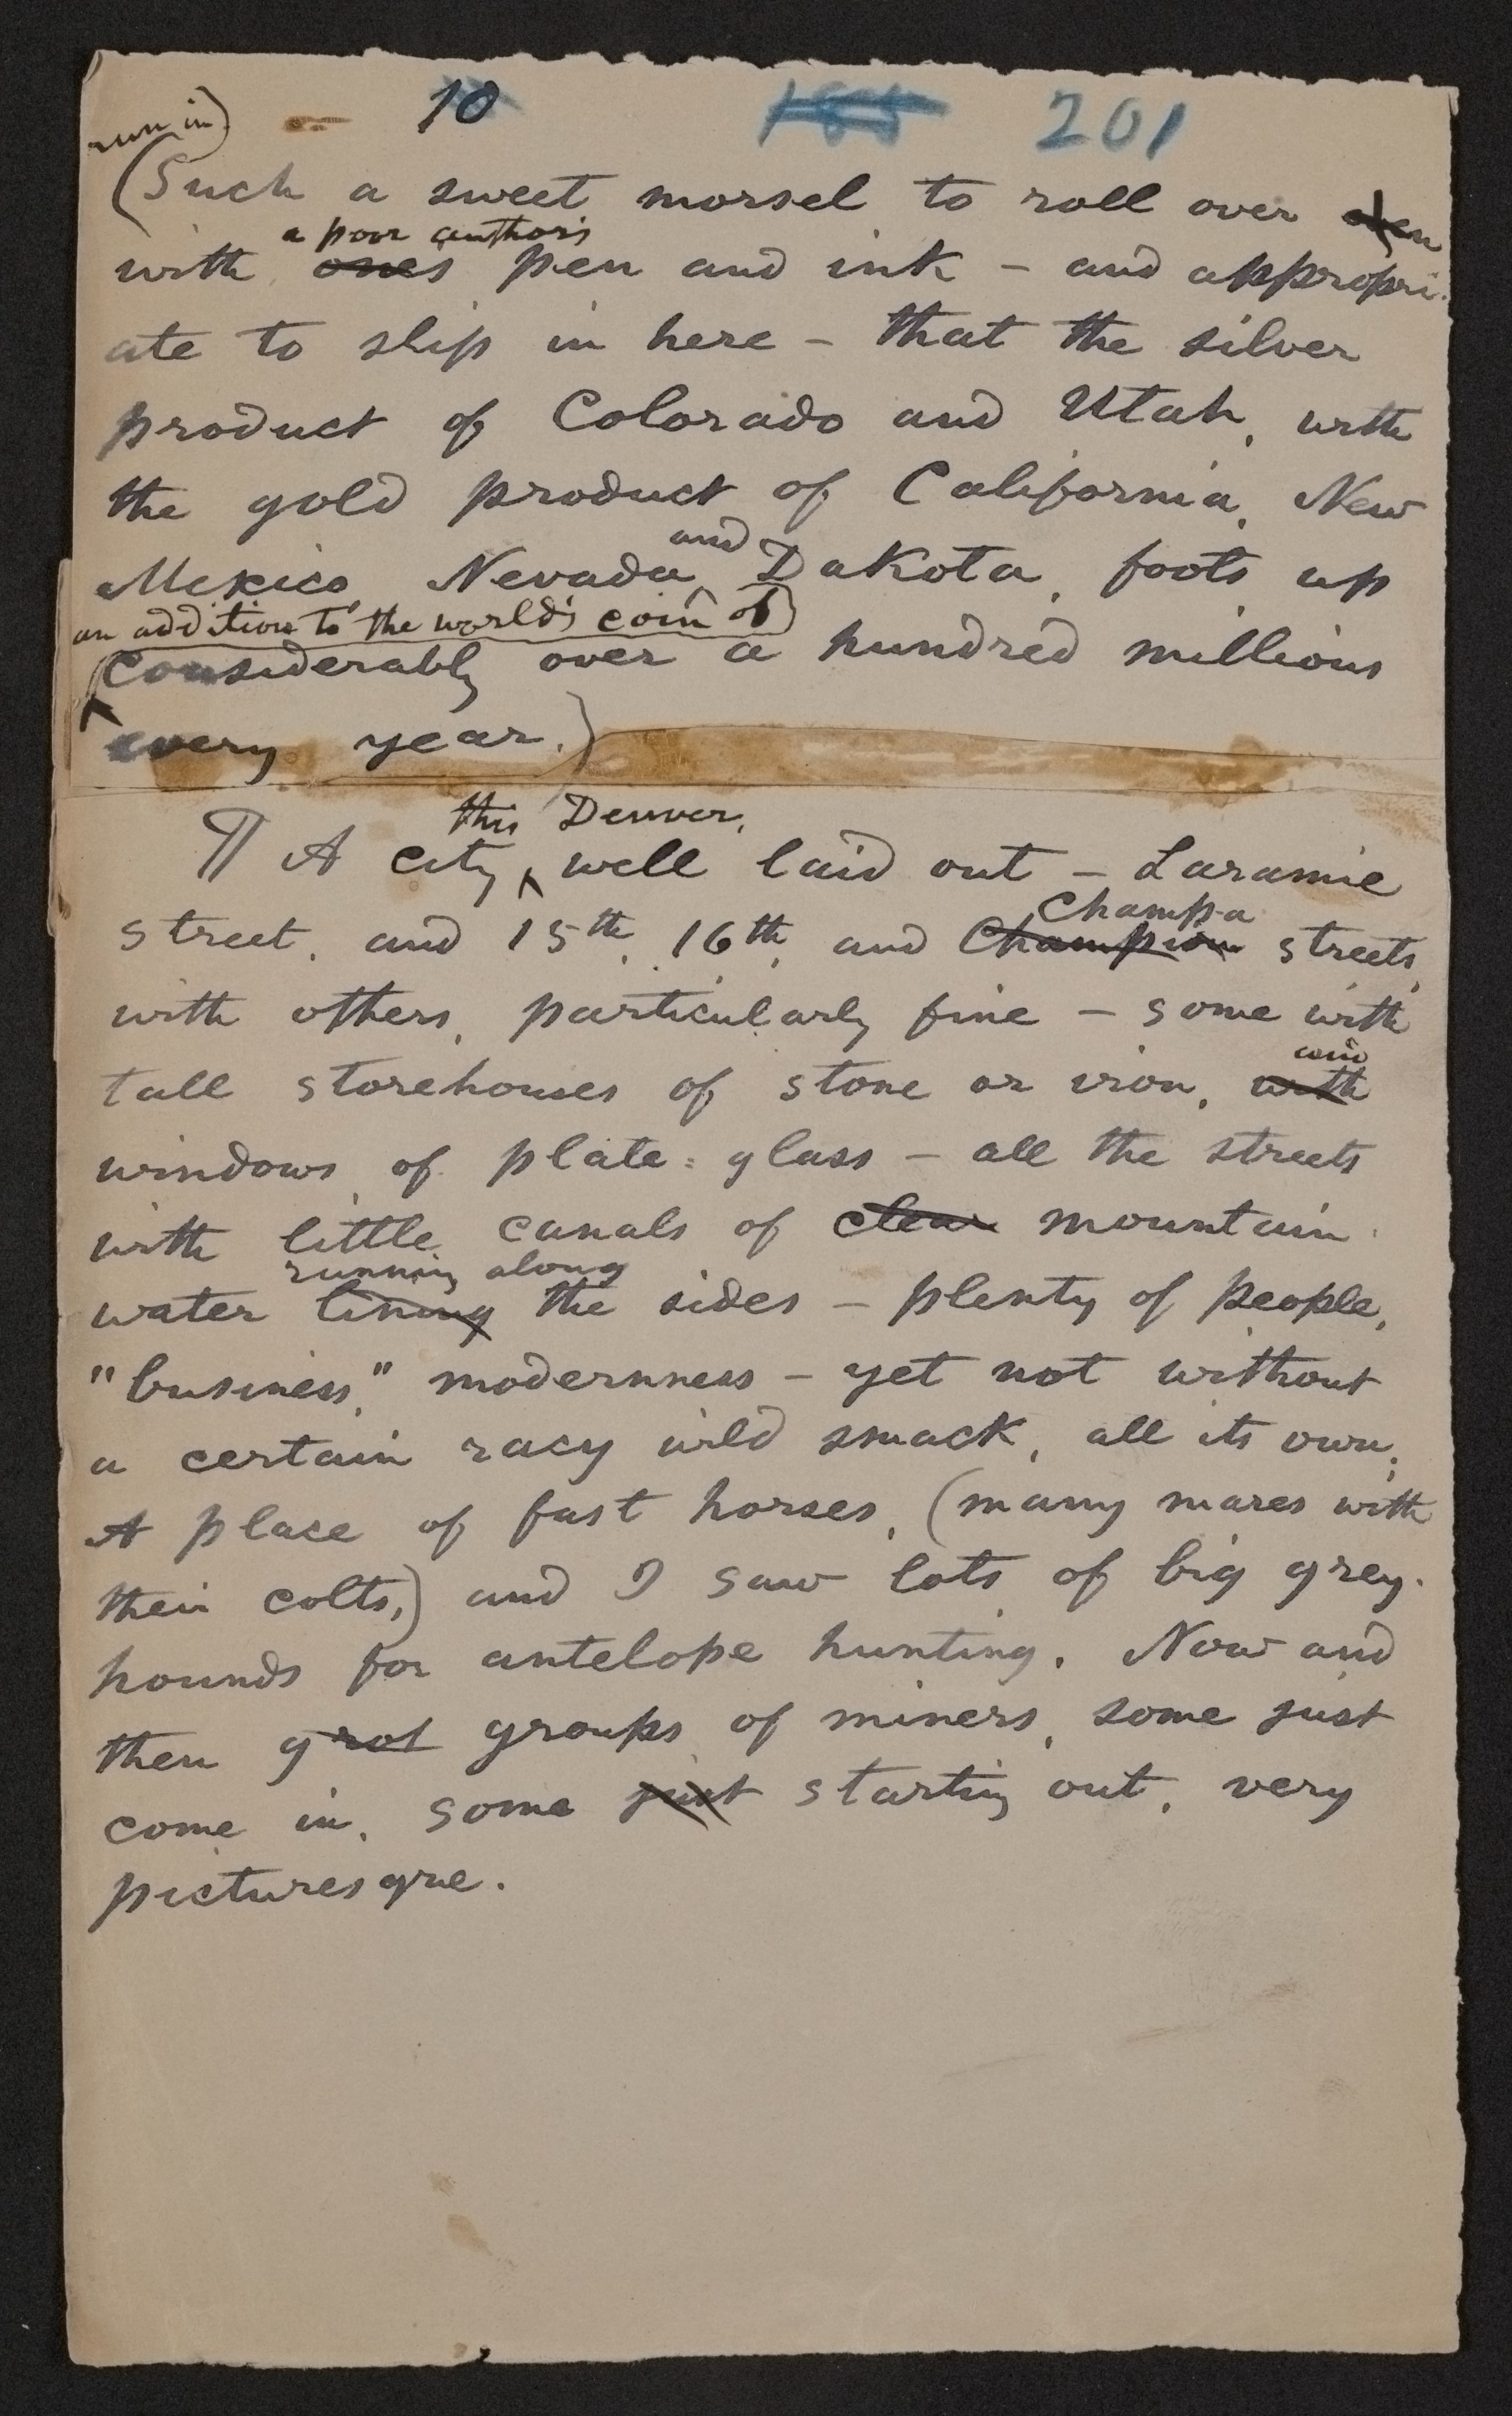 10 185 201
run in)
(Such a sweet morsel to roll over
a poor author's
with ones pen and ink – and appropri-
ate to slip in here – that the silver
product of Colorado and Utah, with
the gold product of California, New
and
Mexico, Nevada, Dakota, foots up
an addition to the world's coin of
considerably over a hundred millions
every year.)
this Denver,
¶ A city, well laid out – Laramie
Champa
street, and 15th, 16th, and Champion streets,
with others, particularly fine – some with
tall storehouses of stone or iron, with
windows of plate-glass – all the streets
with little canals of clear mountain
running along
water lining the sides – plenty of people,
"business," modernness – yet not without
a certain racy wild smack, all its own.
A place of fast horses, (many mares with
their colts,) and I saw lots of big grey-
hounds for antelope hunting. Now and
then grot groups of miners, some just
come in, some just starting out, very
picturesque.